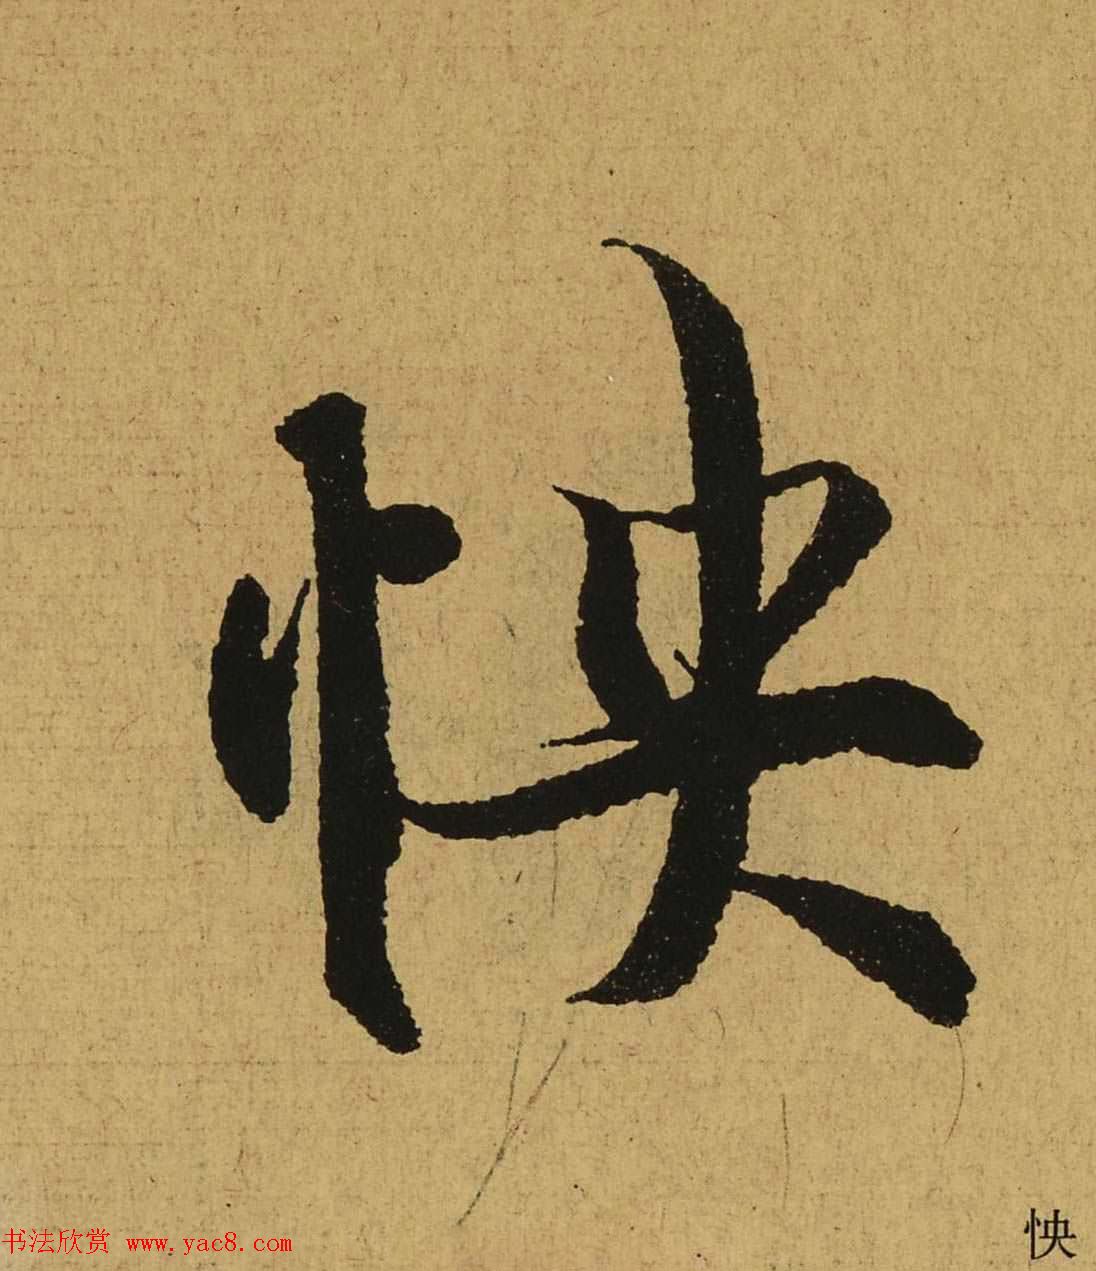 怏
书法欣赏 www.yac8.com
怏